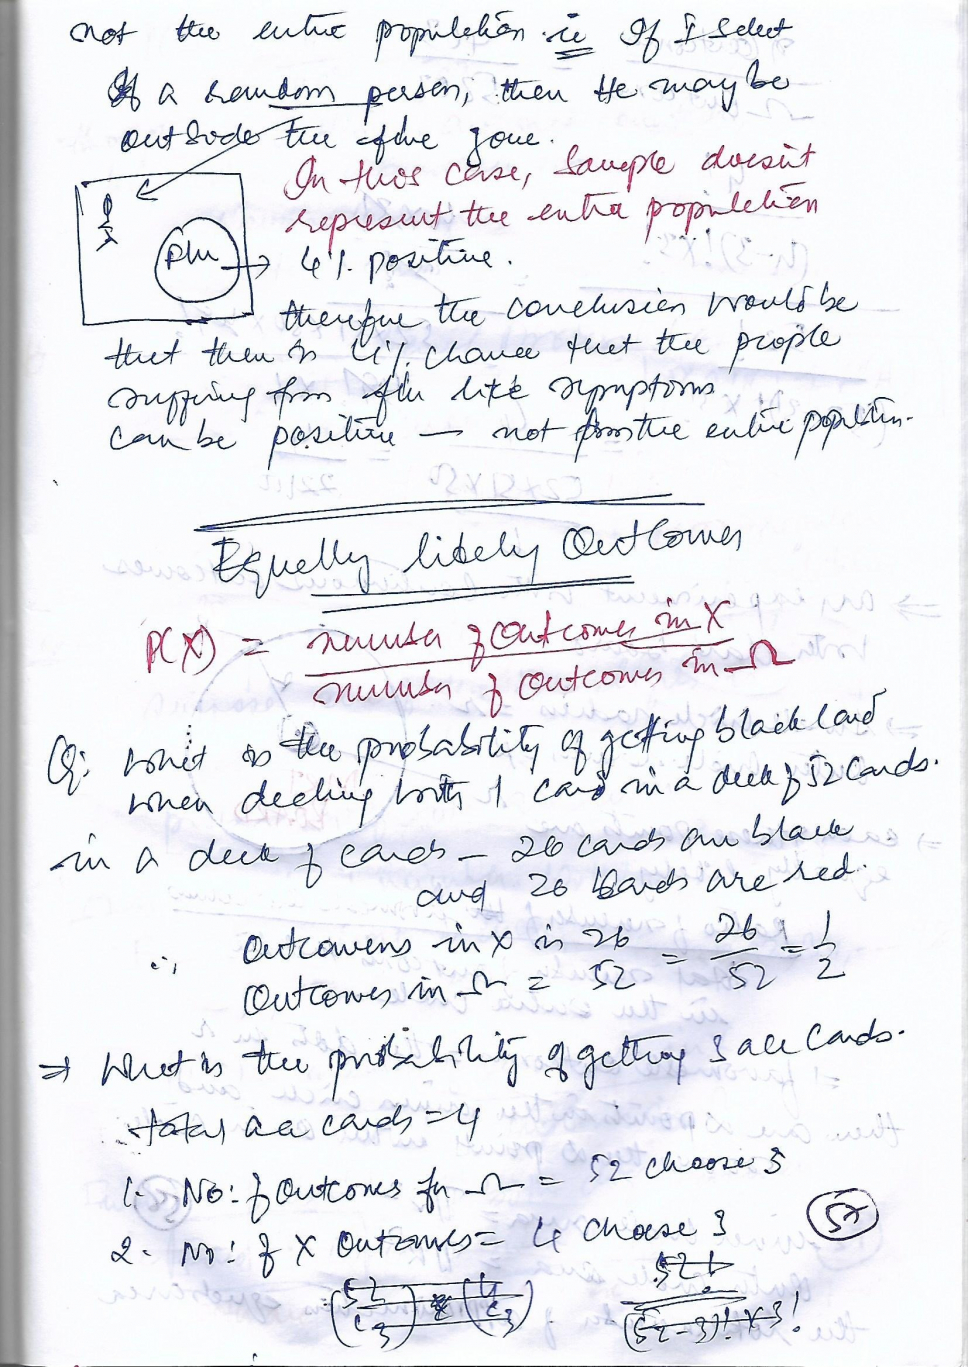 not the entire population ie If I select
If a random person, then He may be
outside the flu zone.
In this case, Sample doesn't
represent the entire population
flu → 4% positive.
therefore the conclusion would be
that then is 4% chance that the people
suffering from flu like symptoms
can be positive — not from the entire population.
Equally likely Outcomes
P(X) = number of outcomes in X
number of outcomes in Ω
Q: what is the probability of getting black card
when decling with 1 card in a deck of 52 cards.
in a deck of cards – 26 cards are black
and 26 cards are red.
∴ outcomens in X is 26 = 26/52 = 1/2
Outcomes in Ω = 52
⇒ What is the probability of getting 3 ace cards.
total ace cards = 4
1. No: of outcomes for Ω = 52 choose 3
2. No: of X outcomes = 4 choose 3
57
(52 C3) (4 C3) 52!
(52-3)! × 3!